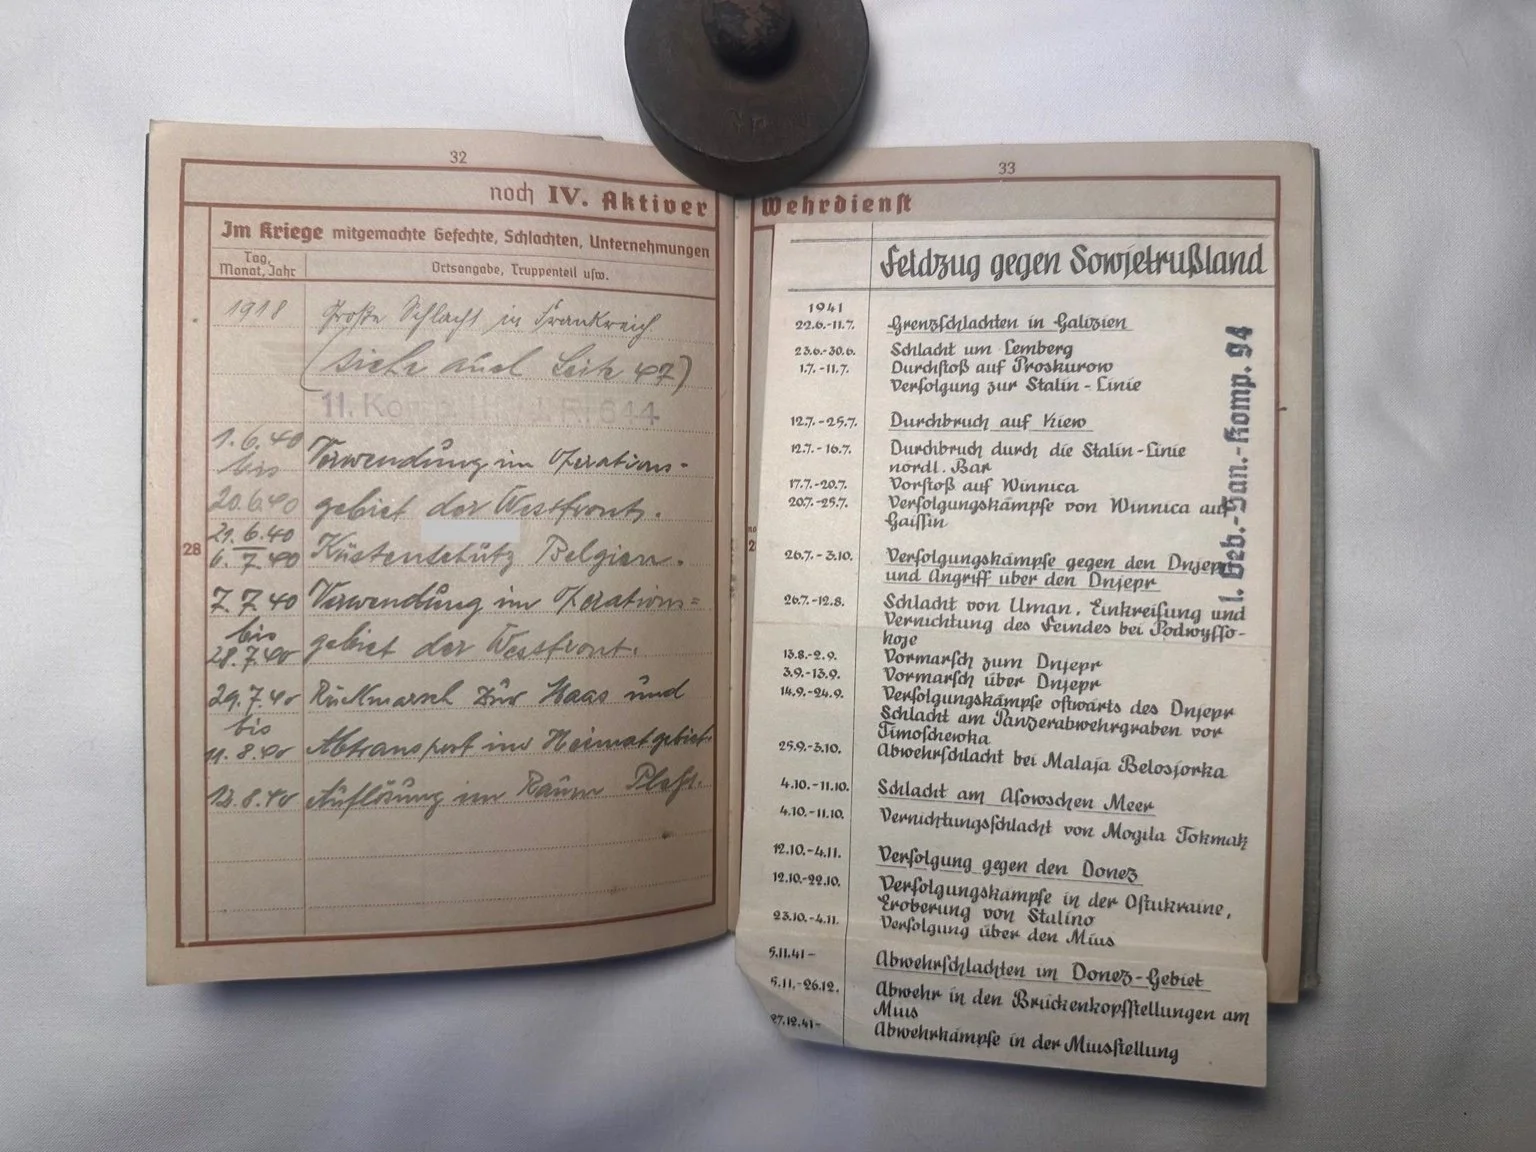 32
noch IV. Aktiver
Im Kriege mitgemachte Gefechte, Schlachten, Unternehmungen
Tag, Monat, Jahr
Ortsangabe, Truppenteil usw.
1918 Große Schlacht in Frankreich
(siehe auch Seite 47)
11. Komp. 644
1.6.40 bis Verwendung im Operations-
20.6.40 gebiet der Westfront.
21.6.40
6.7.40 Küstenschutz Belgien.
28
7.7.40 Verwendung im Operations=
bis
28.7.40 gebiet der Westfront.
29.7.40 Rückmarsch zur Maas und
bis
11.8.40 Abtransport ins Heimatgebiet.
12.8.40 Auflösung im Raum
33
Wehrdienst
Feldzug gegen Sowjetrußland
1941
22.6.-11.7. Grenzschlachten in Galizien
23.6.-30.6. Schlacht um Lemberg
1.7.-11.7. Durchstoß auf Proskurow
Verfolgung zur Stalin-Linie
12.7.-25.7. Durchbruch auf Kiew
12.7.-16.7. Durchbruch durch die Stalin-Linie
nördl. Bar
17.7.-20.7. Vorstoß auf Winnica
20.7.-25.7. Verfolgungskämpfe von Winnica auf
Gaissin
26.7.-3.10. Verfolgungskämpfe gegen den Dnjepr
und Angriff über den Dnjepr
26.7.-12.8. Schlacht von Uman, Einkreisung und
Vernichtung des Feindes bei Podwysso-
koje
13.8.-2.9. Vormarsch zum Dnjepr
3.9.-13.9. Vormarsch über Dnjepr
14.9.-24.9. Verfolgungskämpfe ostwärts des Dnjepr
Schlacht am Panzerabwehrgraben vor
Timoschewka
25.9.-3.10. Abwehrschlacht bei Malaja Belosjorka
4.10.-11.10. Schlacht am Asowschen Meer
4.10.-11.10. Vernichtungsschlacht von Mogila Tokmak
12.10.-4.11. Verfolgung gegen den Donez
12.10.-22.10. Verfolgungskämpfe in der Ostukraine,
Eroberung von Stalino
23.10.-4.11. Verfolgung über den Mius
5.11.41- Abwehrschlachten im Donez-Gebiet
5.11.-26.12. Abwehr in den Brückenkopfstellungen am
Mius
27.12.41- Abwehrkämpfe in der Miusstellung
1. Geb.-San.-Komp. 94